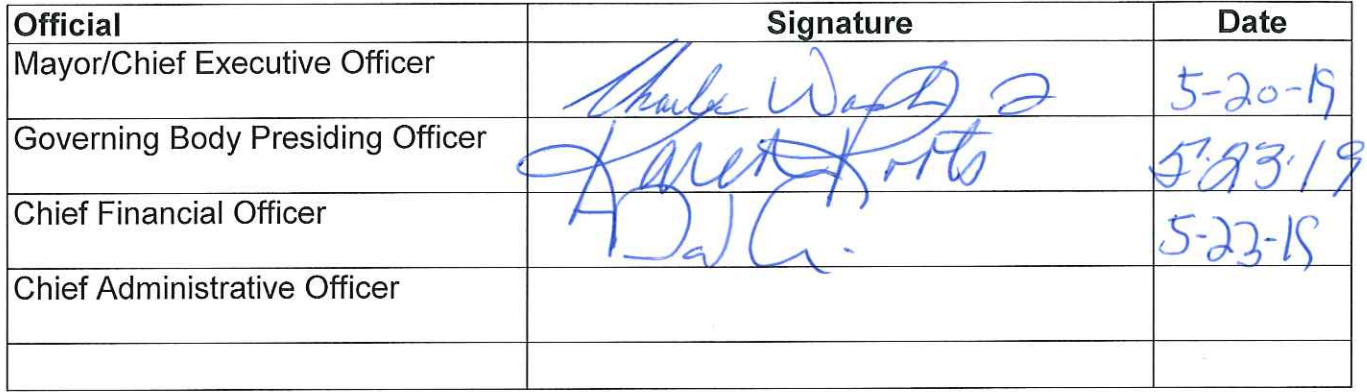 Official Signature Date
Mayor/Chief Executive Officer 5-20-19
Governing Body Presiding Officer Karen Korts 5-23-19
Chief Financial Officer 5-23-19
Chief Administrative Officer